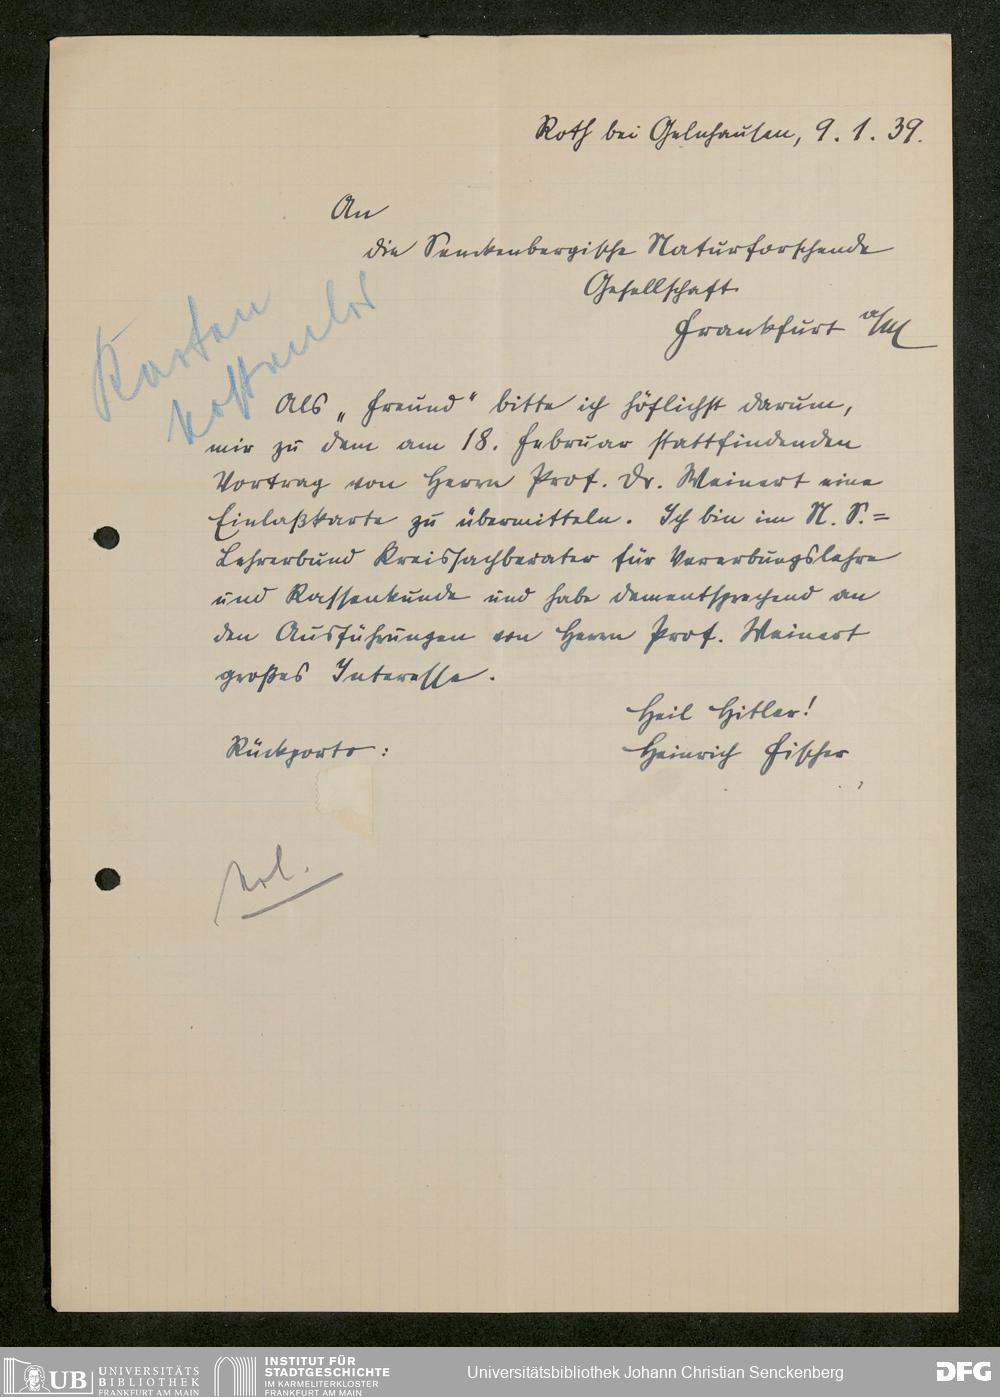 Roth bei Gelnhausen, 9. 1. 39.
An
die Senckenbergische Naturforschende
Gesellschaft
Frankfurt a/M
Karten
kostenlos
Als „Freund" bitte ich höflichst darum,
mir zu dem am 18. Februar stattfindenden
Vortrag von Herrn Prof. Dr. Weinert eine
Einlaßkarte zu übermitteln. Ich bin im N. S.=
Lehrerbund Kreisfachberater für Vererbungslehre
und Rassenkunde und habe dementsprechend an
den Ausführungen von Herrn Prof. Weinert
großes Interesse.
Heil Hitler!
Rückporto: Heinrich Fischer
Erl.
UB UNIVERSITÄTS
BIBLIOTHEK
FRANKFURT AM MAIN
INSTITUT FÜR
STADTGESCHICHTE
IM KARMELITERKLOSTER
FRANKFURT AM MAIN
Universitätsbibliothek Johann Christian Senckenberg
DFG